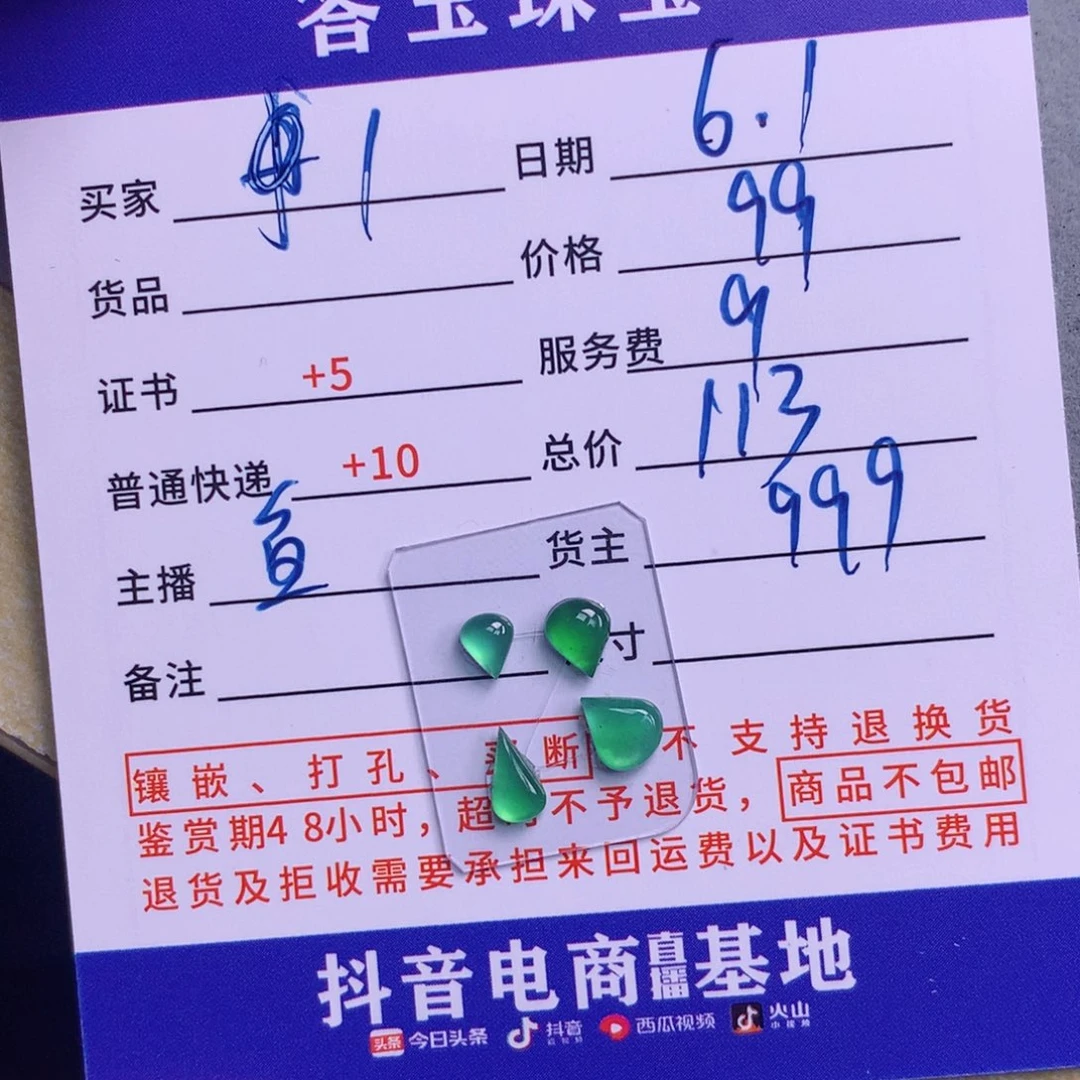 玉珠宝
买家 1 日期 6.1
货品 价格 99
证书 +5 服务费 9
普通快递 +10 总价 113
主播 货主 999
备注 寸
镶嵌、打孔、 断 不支持退换货
鉴赏期48小时，超 不予退货，商品不包邮
退货及拒收需要承担来回运费以及证书费用
抖音电商直播基地
头条 今日头条 抖音 西瓜视频 火山小视频